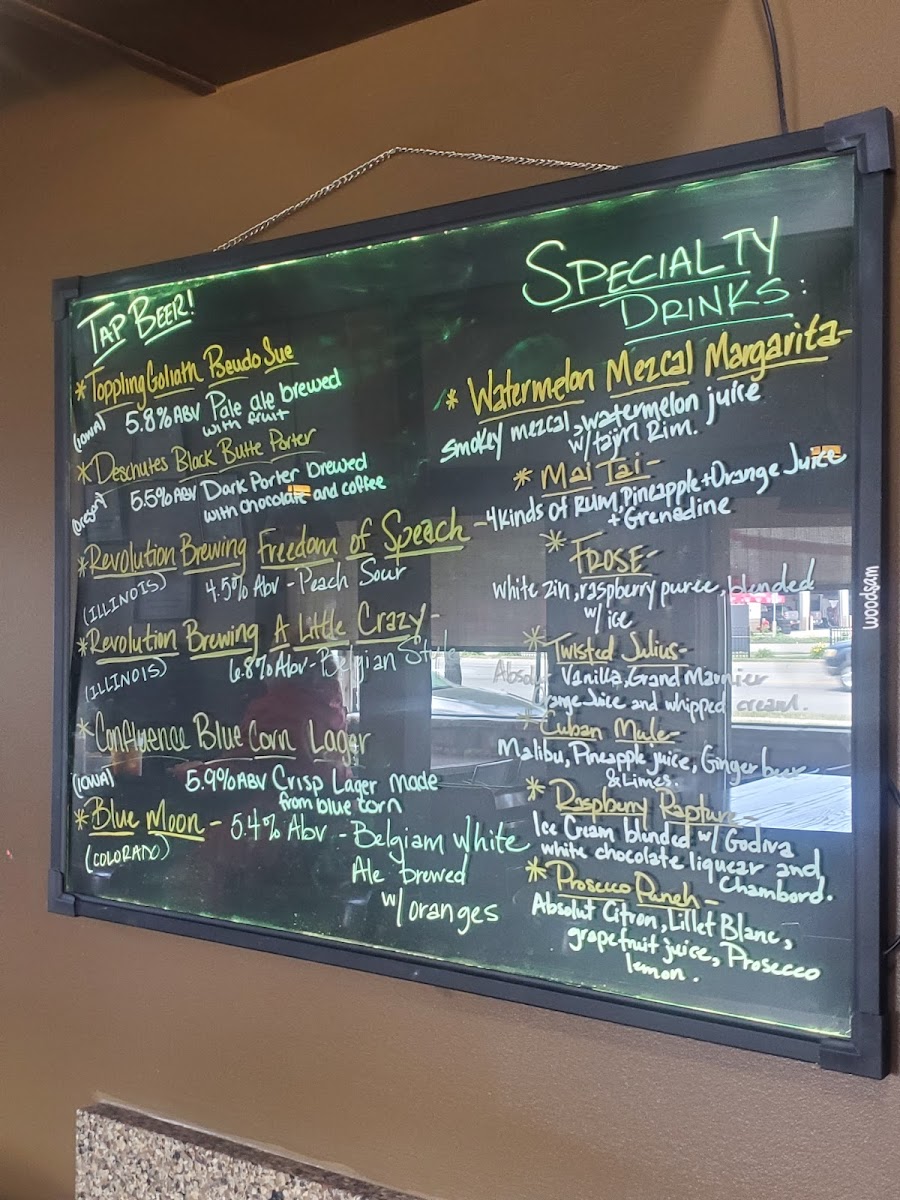 TAP BEER!
*Toppling Goliath Pseudo Sue
(IOWA) 5.8% ABV Pale ale brewed
with fruit
*Deschutes Black Butte Porter
(Oregon) 5.5% ABV Dark Porter brewed
with chocolate and coffee
*Revolution Brewing Freedom of Speach-
(ILLINOIS) 4.5% Abv - Peach Sour
*Revolution Brewing A Little Crazy-
(ILLINOIS) 6.8% Abv- Belgian Style
*Confluence Blue Corn Lager
(IOWA) 5.9% ABV Crisp Lager Made
from blue corn
*Blue Moon - 5.4% Abv - Belgiam White
(COLORADO)
Ale brewed
w/ oranges
SPECIALTY
DRINKS:
* Watermelon Mezcal Margarita-
smokey mezcal, watermelon juice
w/ tajn Rim.
* Mai Tai-
4 kinds of RUM, Pineapple + Orange Juice
+ Grenadine
* FROSE-
white zin, raspberry puree, blended
w/ ice
* Twisted Julius-
Vanilla, Grand Marnier
Juice and whipped cream.
* Cuban Mule-
Malibu, Pineapple juice, Ginger beer
& Limes.
* Raspberry Rapture-
Ice Cream blended w/ Godiva
white chocolate liquear and
Chambord.
* Prosecco Punch-
Absolut Citron, Lillet Blanc,
grapefruit juice, Prosecco
lemon.
woodsam